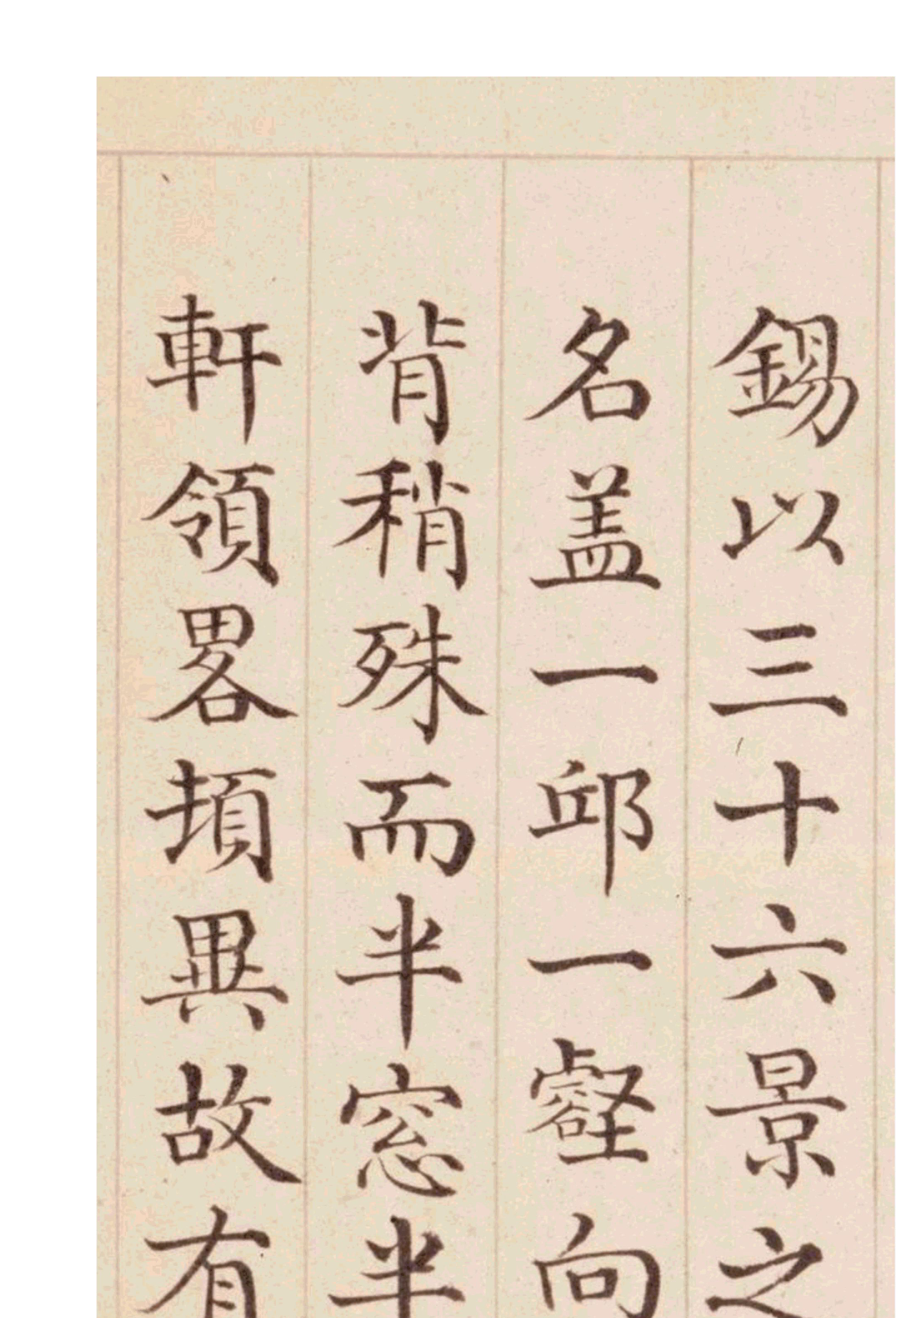 錫以三十六景之
名盖一邱一壑向
背稍殊而半窓半
軒領畧頓異故有